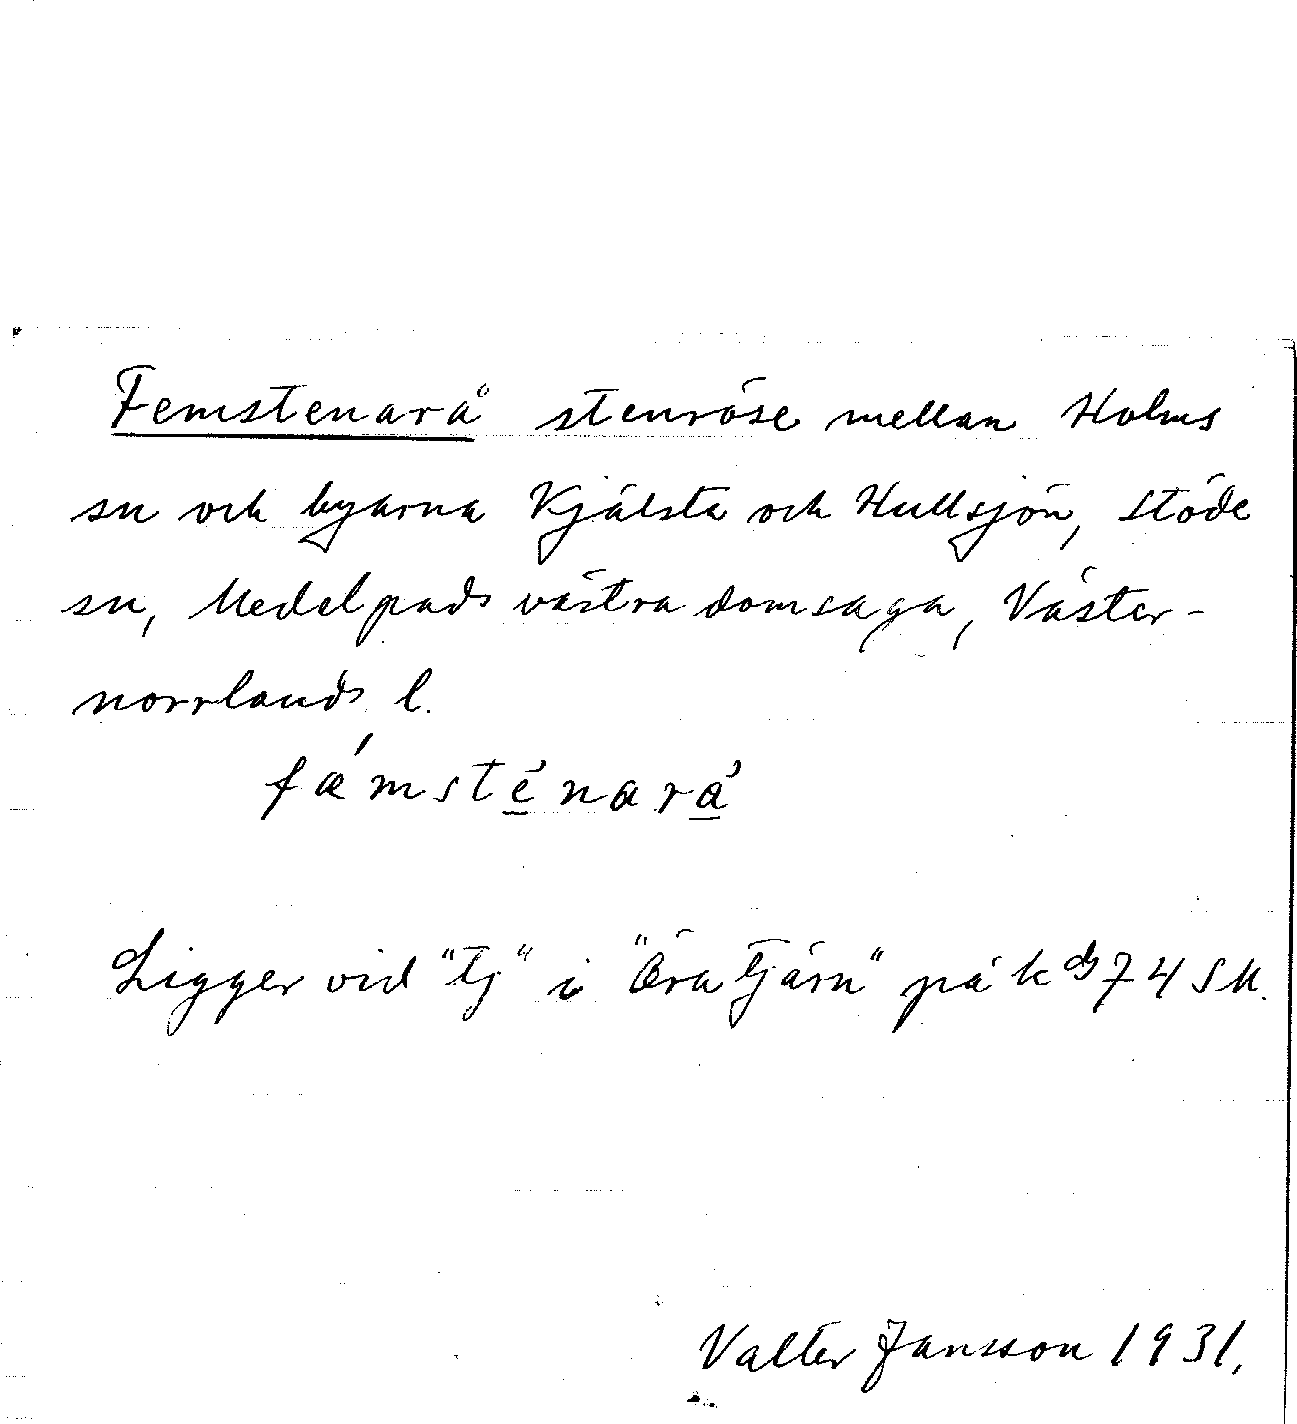 Femstenarå stenröse mellan Holms
sn och byarna Kjälsta och Hullsjön, Stöde
sn, Medelpads västra domsaga, Väster-
norrlands l.
fǽmstènarà
Ligger vid "tj" i "Öratjärn" på kbl 74 SM.
Valter Jansson 1931.